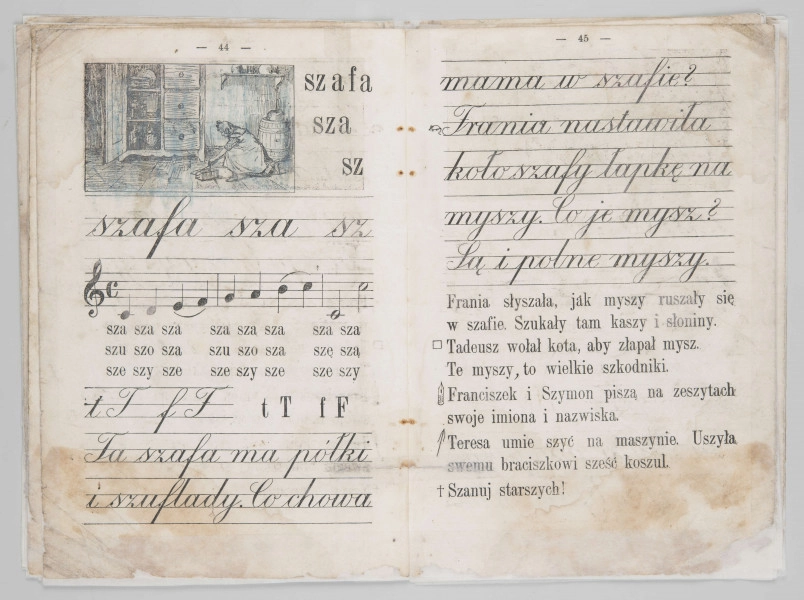 — 44 —
szafa
sza
sz
szafa sza sz
sza sza sza sza sza sza sza sza
szu szo sza szu szo sza szę szą
sze szy sze sze szy sze sze szy
t T f F t T f F
Ta szafa ma półki
i szuflady. Co chowa
— 45 —
mama w szafie?
Frania nastawiła
koło szafy łapkę na
myszy. Co je mysz?
Są i polne myszy.
Frania słyszała, jak myszy ruszały się
w szafie. Szukały tam kaszy i słoniny.
Tadeusz wołał kota, aby złapał mysz.
Te myszy, to wielkie szkodniki.
Franciszek i Szymon piszą na zeszytach
swoje imiona i nazwiska.
Teresa umie szyć na maszynie. Uszyła
swemu braciszkowi sześć koszul.
† Szanuj starszych!